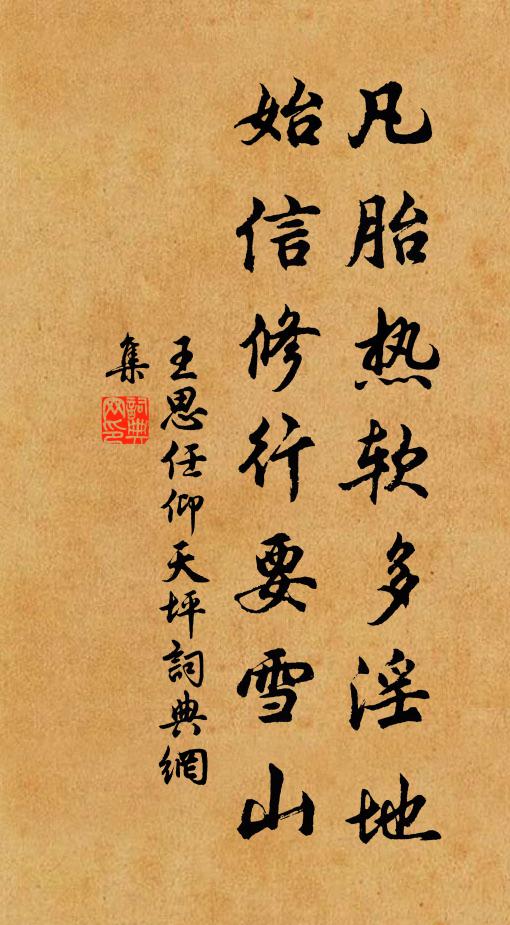 凡胎热软多淫地
始信修行要雪山
王思任仰天坪詞典網
集
詞典网印